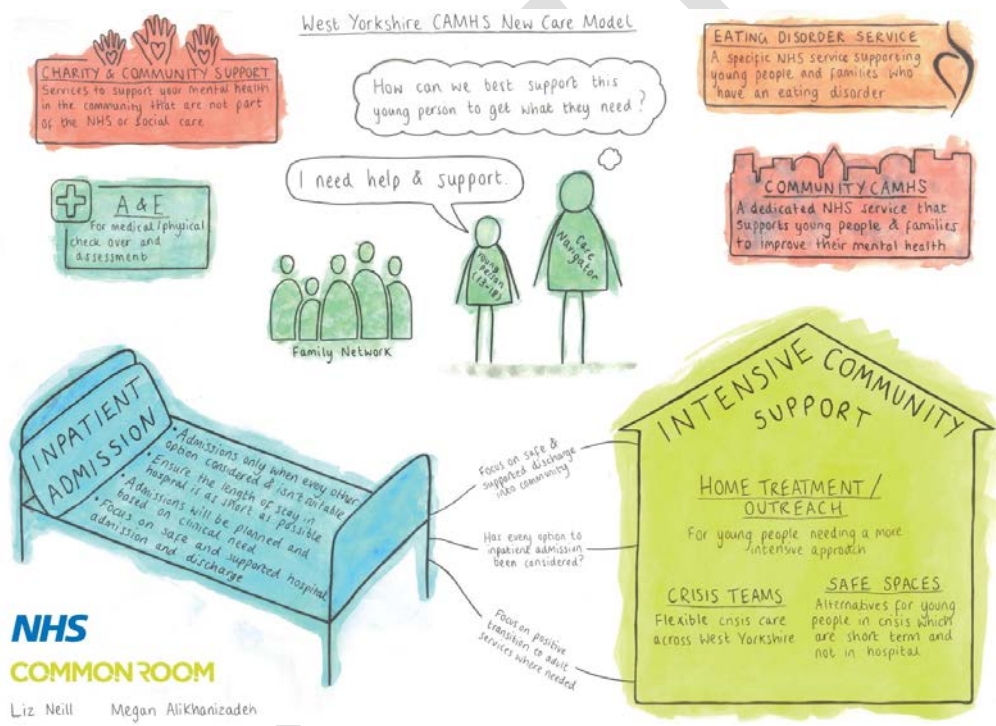 West Yorkshire CAMHS New Care Model
CHARITY & COMMUNITY SUPPORT
Services to support your mental health
in the community that are not part
of the NHS or social care
How can we best support this
young person to get what they need?
EATING DISORDER SERVICE
A specific NHS service supporting
young people and families who
have an eating disorder
A & E
For medical/physical
check over and
assessment
I need help & support.
COMMUNITY CAMHS
A dedicated NHS service that
supports young people & families
to improve their mental health
Family Network
Young
Person
(13-18)
Care
Navigator
INPATIENT
ADMISSION
• Admissions only when every other
option considered & isn't suitable
• Ensure the length of stay in
hospital is as short as possible
• Admissions will be planned and
based on clinical need
• Focus on safe and supported hospital
admission and discharge
Focus on safe &
supported discharge
into community
Has every option to
inpatient admission
been considered?
Focus on positive
transition to adult
services where needed
INTENSIVE COMMUNITY
SUPPORT
HOME TREATMENT/
OUTREACH
For young people needing a more
intensive approach
CRISIS TEAMS
Flexible crisis care
across West Yorkshire
SAFE SPACES
Alternatives for young
people in crisis which
are short term and
not in hospital
NHS
COMMON ROOM
Liz Neill Megan Alikhanizadeh